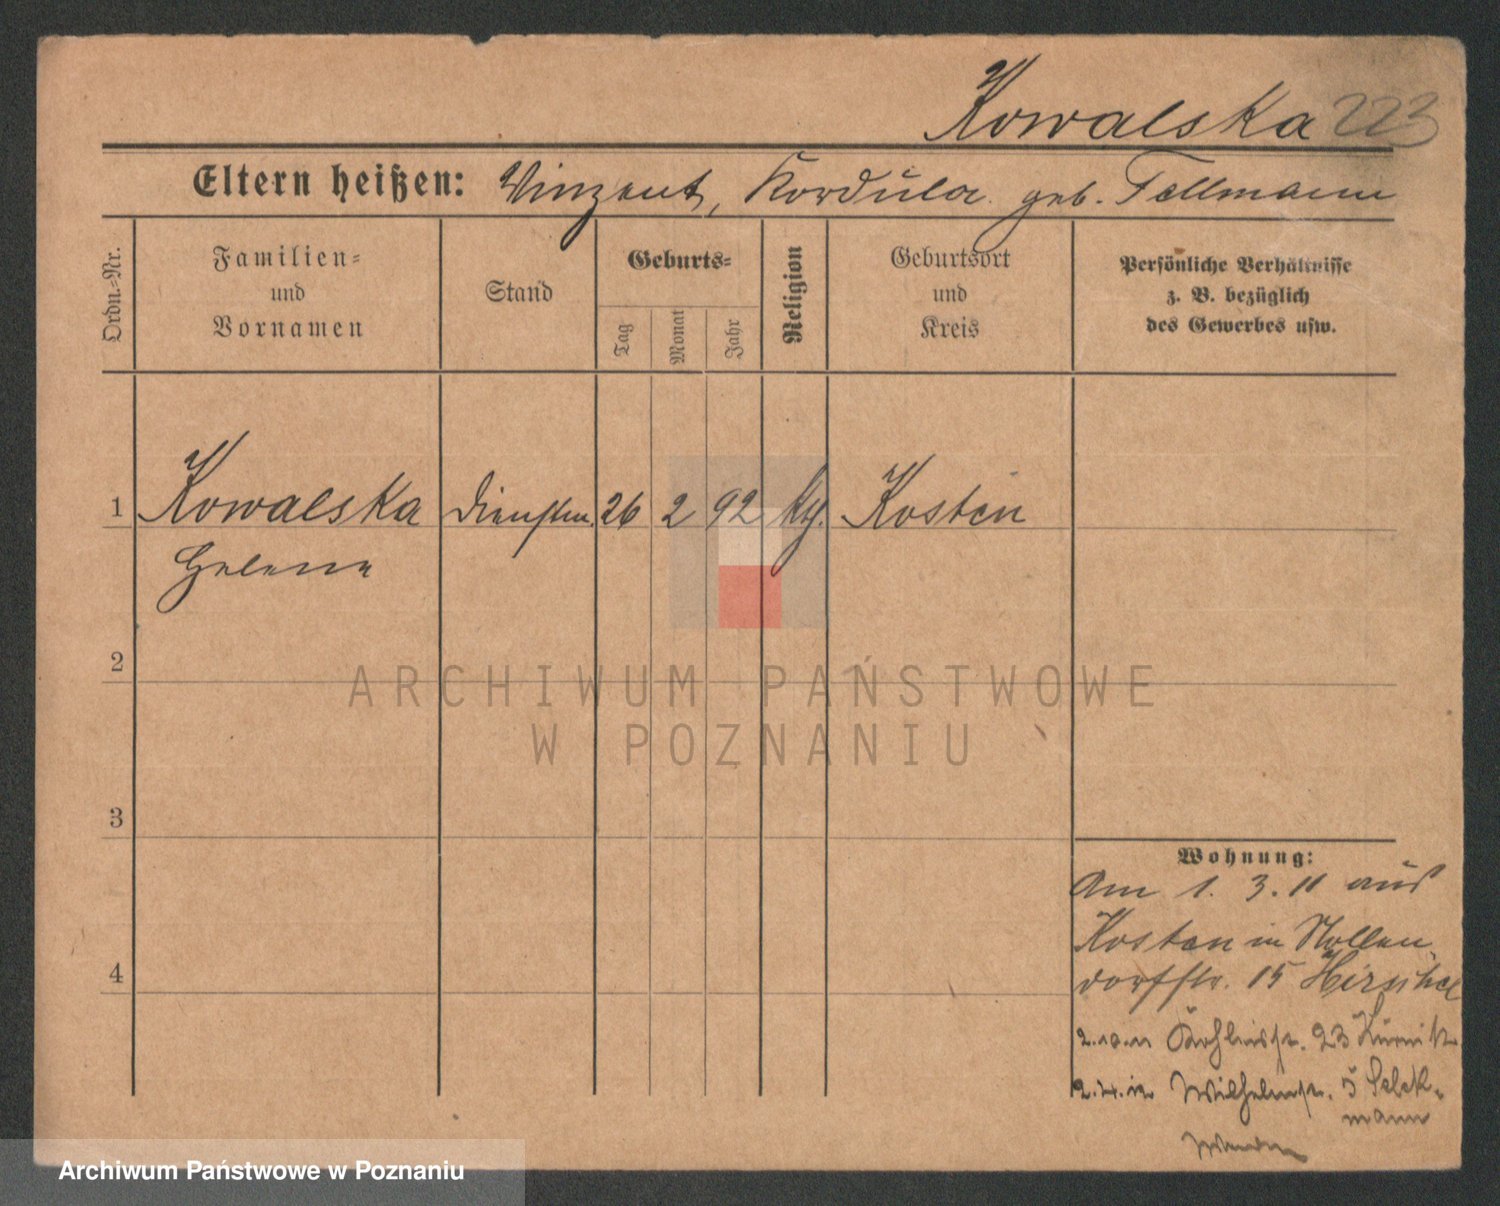 Kowalska 223
Eltern heißen: Vinzent, Kordula geb. Tellmann
Ordn.-Nr.
Familien-
und
Vornamen
Stand
Geburts-
Tag
Monat
Jahr
Religion
Geburtsort
und
Kreis
Persönliche Verhältnisse
z. B. bezüglich
des Gewerbes usw.
1 Kowalska Dienstm. 26 2 92 Kosten
Helena
2
3
4
Wohnung:
Am 1. 3. 11 aus
Kosten in Nollen-
dorfstr. 15
2.10.11 23
2.4.12 Wilhelmstr. 5
mann
ARCHIWUM PAŃSTWOWE
W POZNANIU
Archiwum Państwowe w Poznaniu